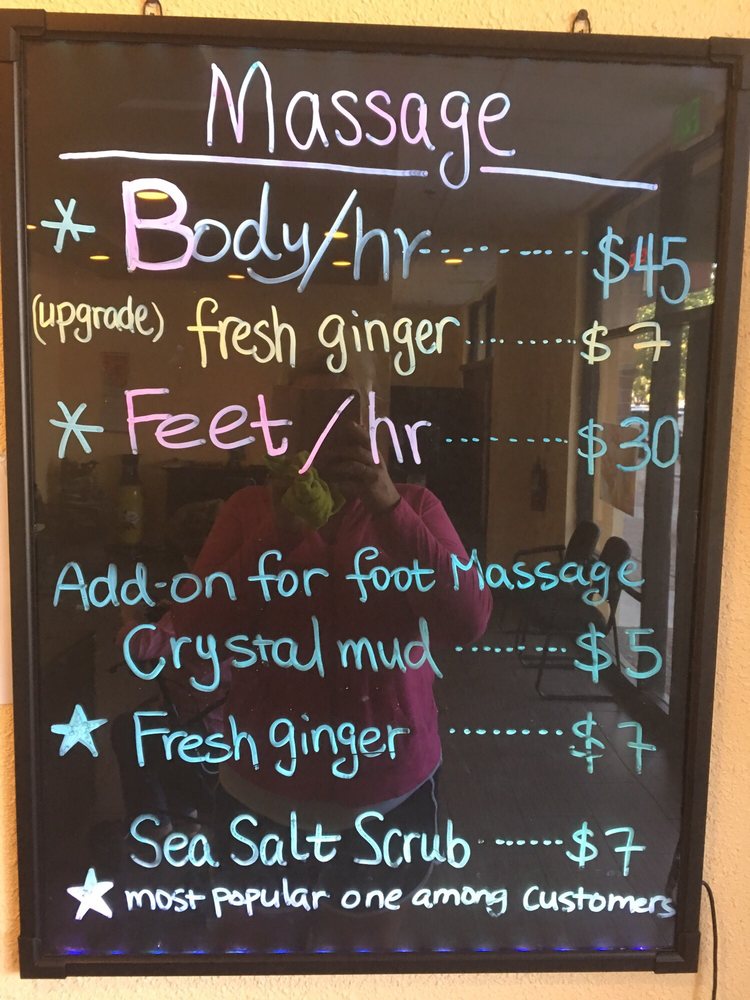 Massage
* Body/hr ............ $45
(upgrade) fresh ginger ............ $7
* Feet/hr ............ $30
Add-on for foot Massage
Crystal mud ......... $5
★ Fresh ginger ......... $7
Sea Salt Scrub ...... $7
★ most popular one among customers